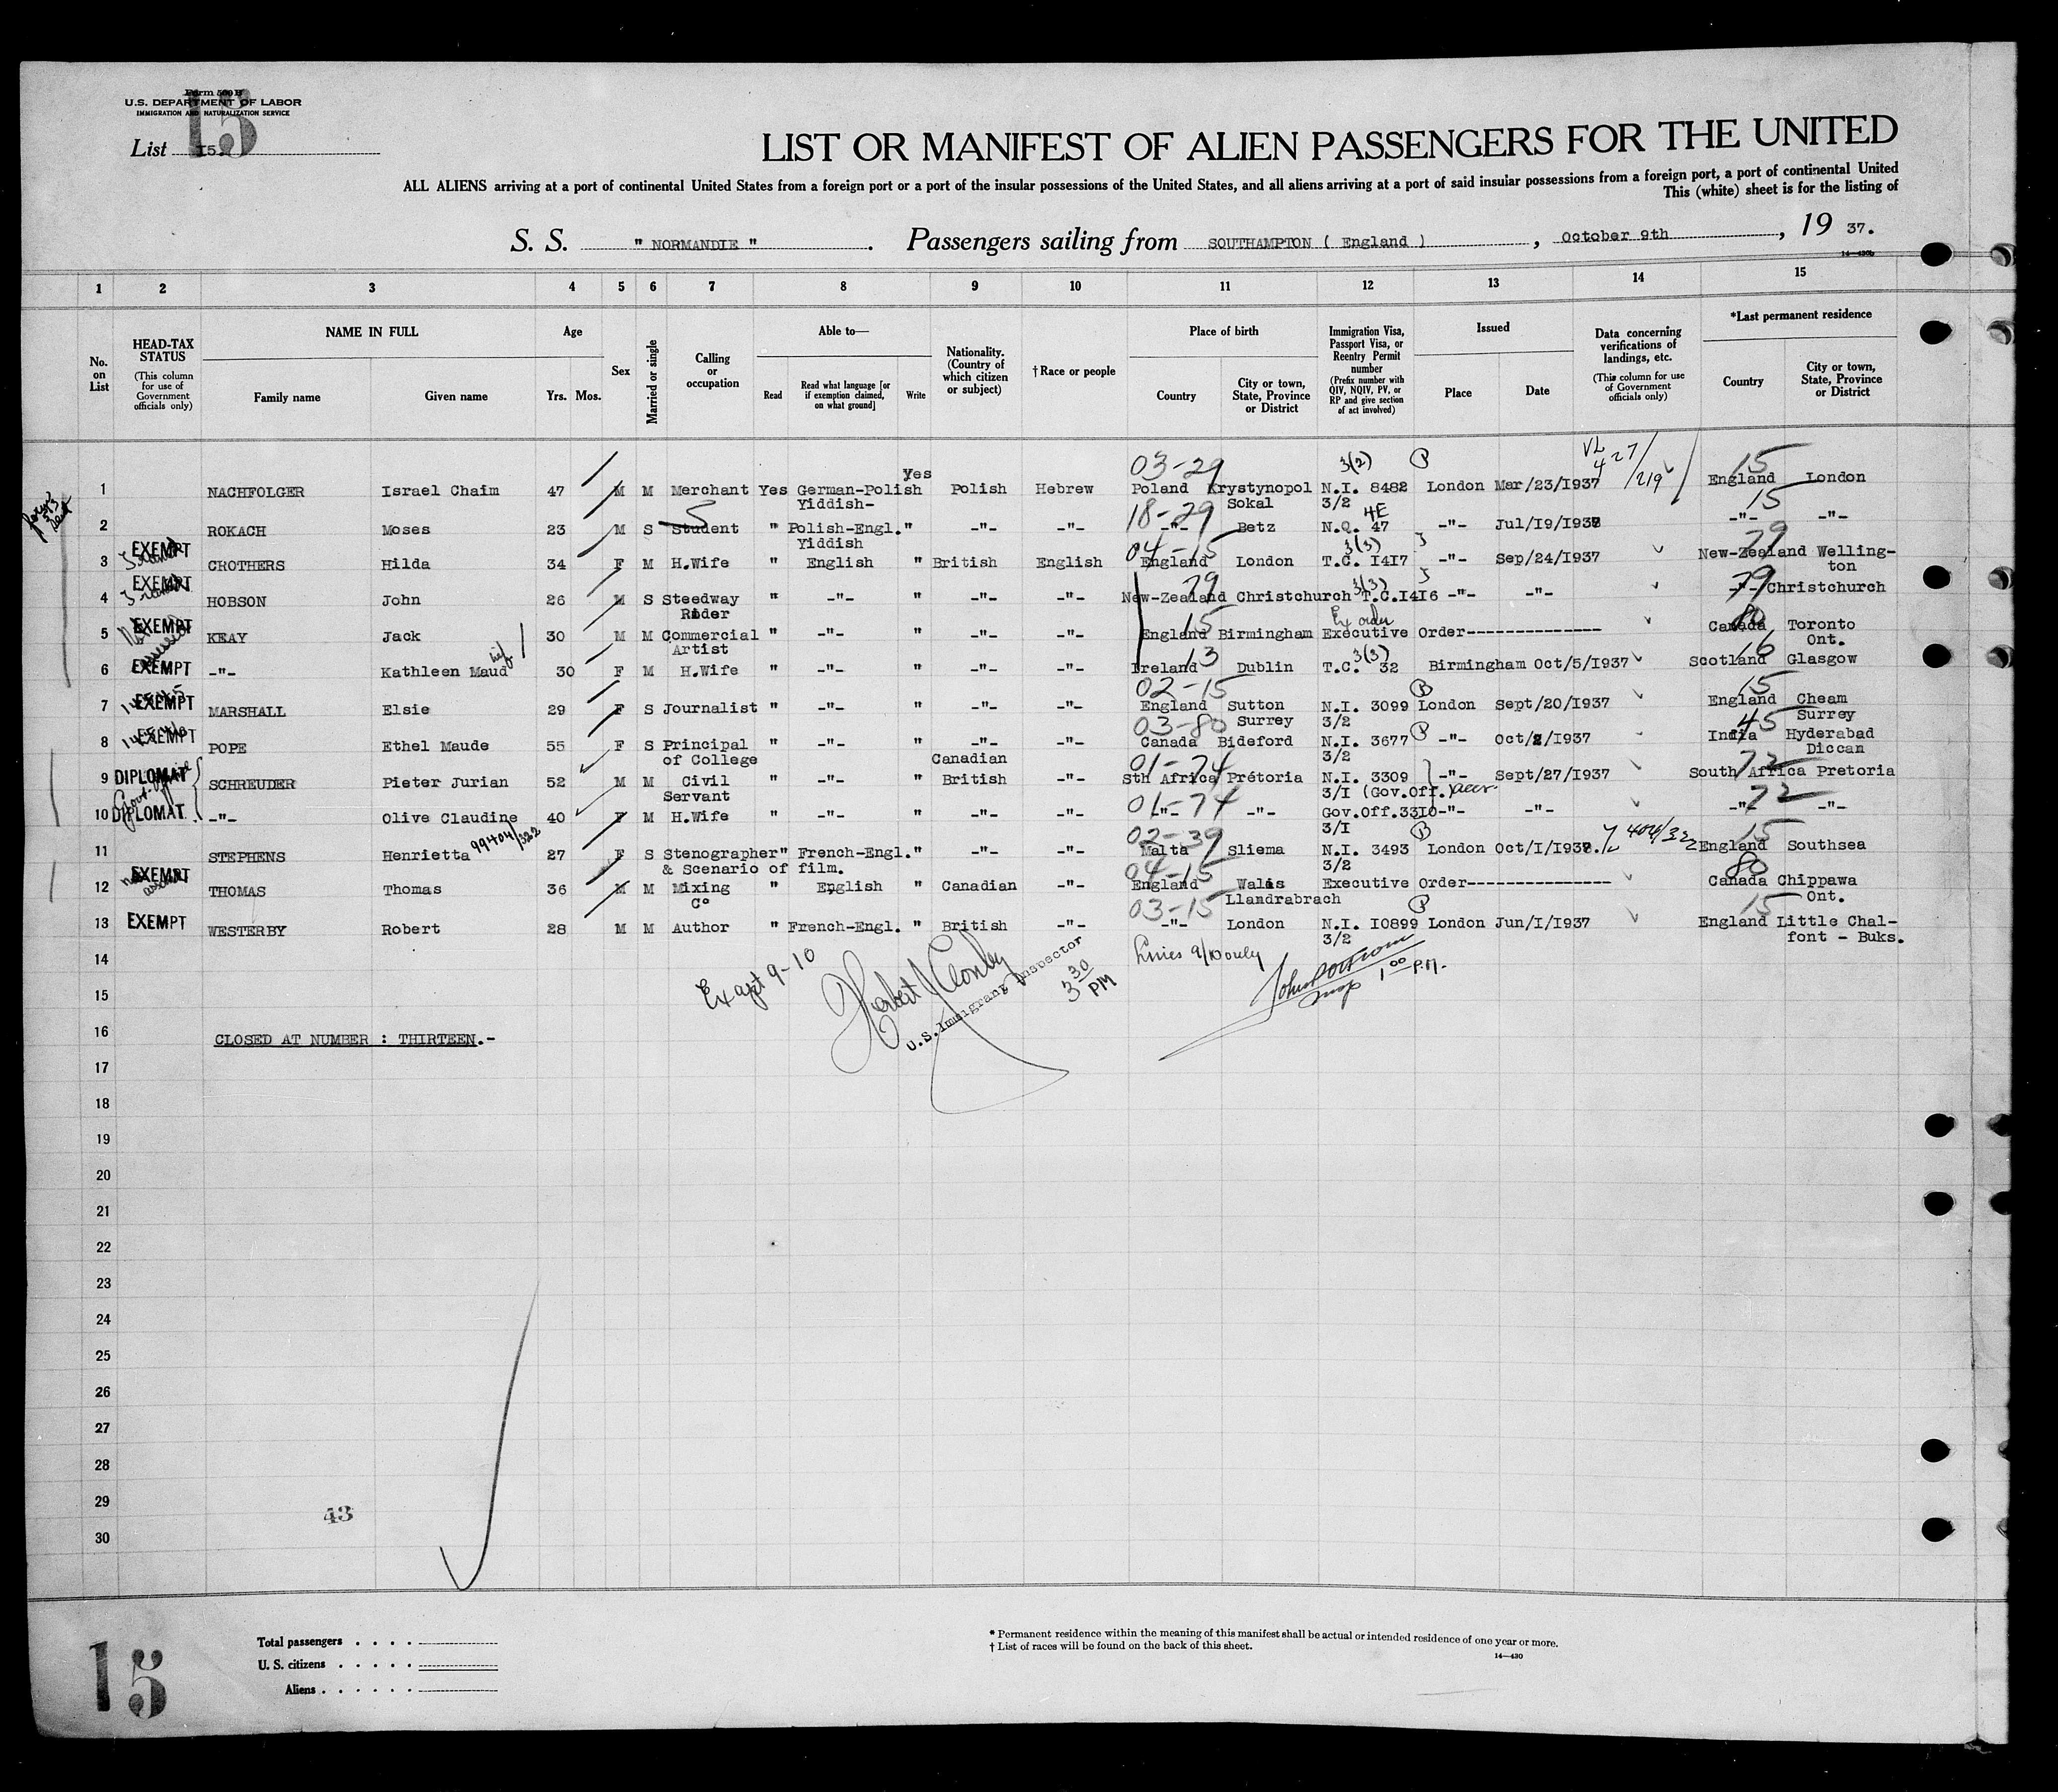 Form 500 B
U.S. DEPARTMENT OF LABOR
IMMIGRATION AND NATURALIZATION SERVICE
15
List 15.
LIST OR MANIFEST OF ALIEN PASSENGERS FOR THE UNITED
ALL ALIENS arriving at a port of continental United States from a foreign port or a port of the insular possessions of the United States, and all aliens arriving at a port of said insular possessions from a foreign port, a port of continental United
This (white) sheet is for the listing of
S. S. " NORMANDIE " . Passengers sailing from SOUTHAMPTON ( England ) , October 9th , 19 37.
14—430b
1 2 3 4 5 6 7 8 9 10 11 12 13 14 15
No. on List
HEAD-TAX STATUS (This column for use of Government officials only)
NAME IN FULL Family name Given name
Age Yrs. Mos.
Sex
Married or single
Calling or occupation
Able to— Read Read what language [or if exemption claimed, on what ground] Write
Nationality. (Country of which citizen or subject)
†Race or people
Place of birth Country City or town, State, Province or District
Immigration Visa, Passport Visa, or Reentry Permit number (Prefix number with QIV, NQIV, PV, or RP and give section of act involved)
Issued Place Date
Data concerning verifications of landings, etc. (This column for use of Government officials only)
*Last permanent residence Country City or town, State, Province or District
03-29 3(2) P VL 427/219 15
1 NACHFOLGER Israel Chaim 47 M M Merchant Yes German-Polish Yes Polish Hebrew Poland Krystynopol N.I. 8482 London Mar/23/1937 England London
Yiddish- Sokal 3/2
18-29 4E 15
2 ROKACH Moses 23 M S Student " Polish-Engl. " -"- -"- -"- Betz N.Q. 47 -"- Jul/19/1937 -"- -"-
Yiddish
04-15 3(3) 79
3 EXEMPT CROTHERS Hilda 34 F M H.Wife " English " British English England London T.C. 1417 -"- Sep/24/1937 New-Zealand Welling-
ton
79 3(3) 79
4 EXEMPT HOBSON John 26 M S Steedway " -"- " -"- -"- New-Zealand Christchurch T.C.1416 -"- -"- -"- Christchurch
Rider
15 Ex order 80
5 EXEMPT KEAY Jack 30 M M Commercial " -"- " -"- -"- England Birmingham Executive Order--------------- Canada Toronto
Artist Ont.
13 3(3) 16
6 EXEMPT -"- Kathleen Maud 30 F M H.Wife " -"- " -"- -"- Ireland Dublin T.C. 32 Birmingham Oct/5/1937 Scotland Glasgow
02-15 P 15
7 EXEMPT MARSHALL Elsie 29 F S Journalist " -"- " -"- -"- England Sutton N.I. 3099 London Sept/20/1937 England Cheam
Surrey 3/2 Surrey
03-80 P 45
8 EXEMPT POPE Ethel Maude 55 F S Principal " -"- " -"- -"- Canada Bideford N.I. 3677 -"- Oct/2/1937 India Hyderabad
of College Canadian 3/2 Diccan
01-74 72
9 DIPLOMAT SCHREUDER Pieter Jurian 52 M M Civil " -"- " British -"- Sth Africa Prétoria N.I. 3309 -"- Sept/27/1937 South Africa Pretoria
Servant 3/I (Gov.Off.)
01-74 72
10 DIPLOMAT -"- Olive Claudine 40 F M H.Wife " -"- " -"- -"- -"- -"- Gov.Off.3310 -"- -"- -"- -"-
3/I
99404/322 02-39 P 404/322 15
11 STEPHENS Henrietta 27 F S Stenographer " French-Engl. " -"- -"- Malta Sliema N.I. 3493 London Oct/1/1937. England Southsea
& Scenario of film. 3/2
04-15 80
12 EXEMPT THOMAS Thomas 36 M M Mixing " English " Canadian -"- England Wales Executive Order---------------- Canada Chippawa
C° Llandrabrach Ont.
03-15 P 15
13 EXEMPT WESTERBY Robert 28 M M Author " French-Engl. " British -"- -"- London N.I. 10899 London Jun/1/1937 England Little Chal-
3/2 font - Buks.
14
Ex cept 9-10 U.S. Immigrant Inspector 3 30 PM Lines 9/10 only 1 00 P.M.
15
16 CLOSED AT NUMBER : THIRTEEN.-
17
18
19
20
21
22
23
24
25
26
27
28
29
43
30
15
Total passengers . . . .
U. S. citizens . . . . .
Aliens . . . . . .
* Permanent residence within the meaning of this manifest shall be actual or intended residence of one year or more.
† List of races will be found on the back of this sheet.
14—430